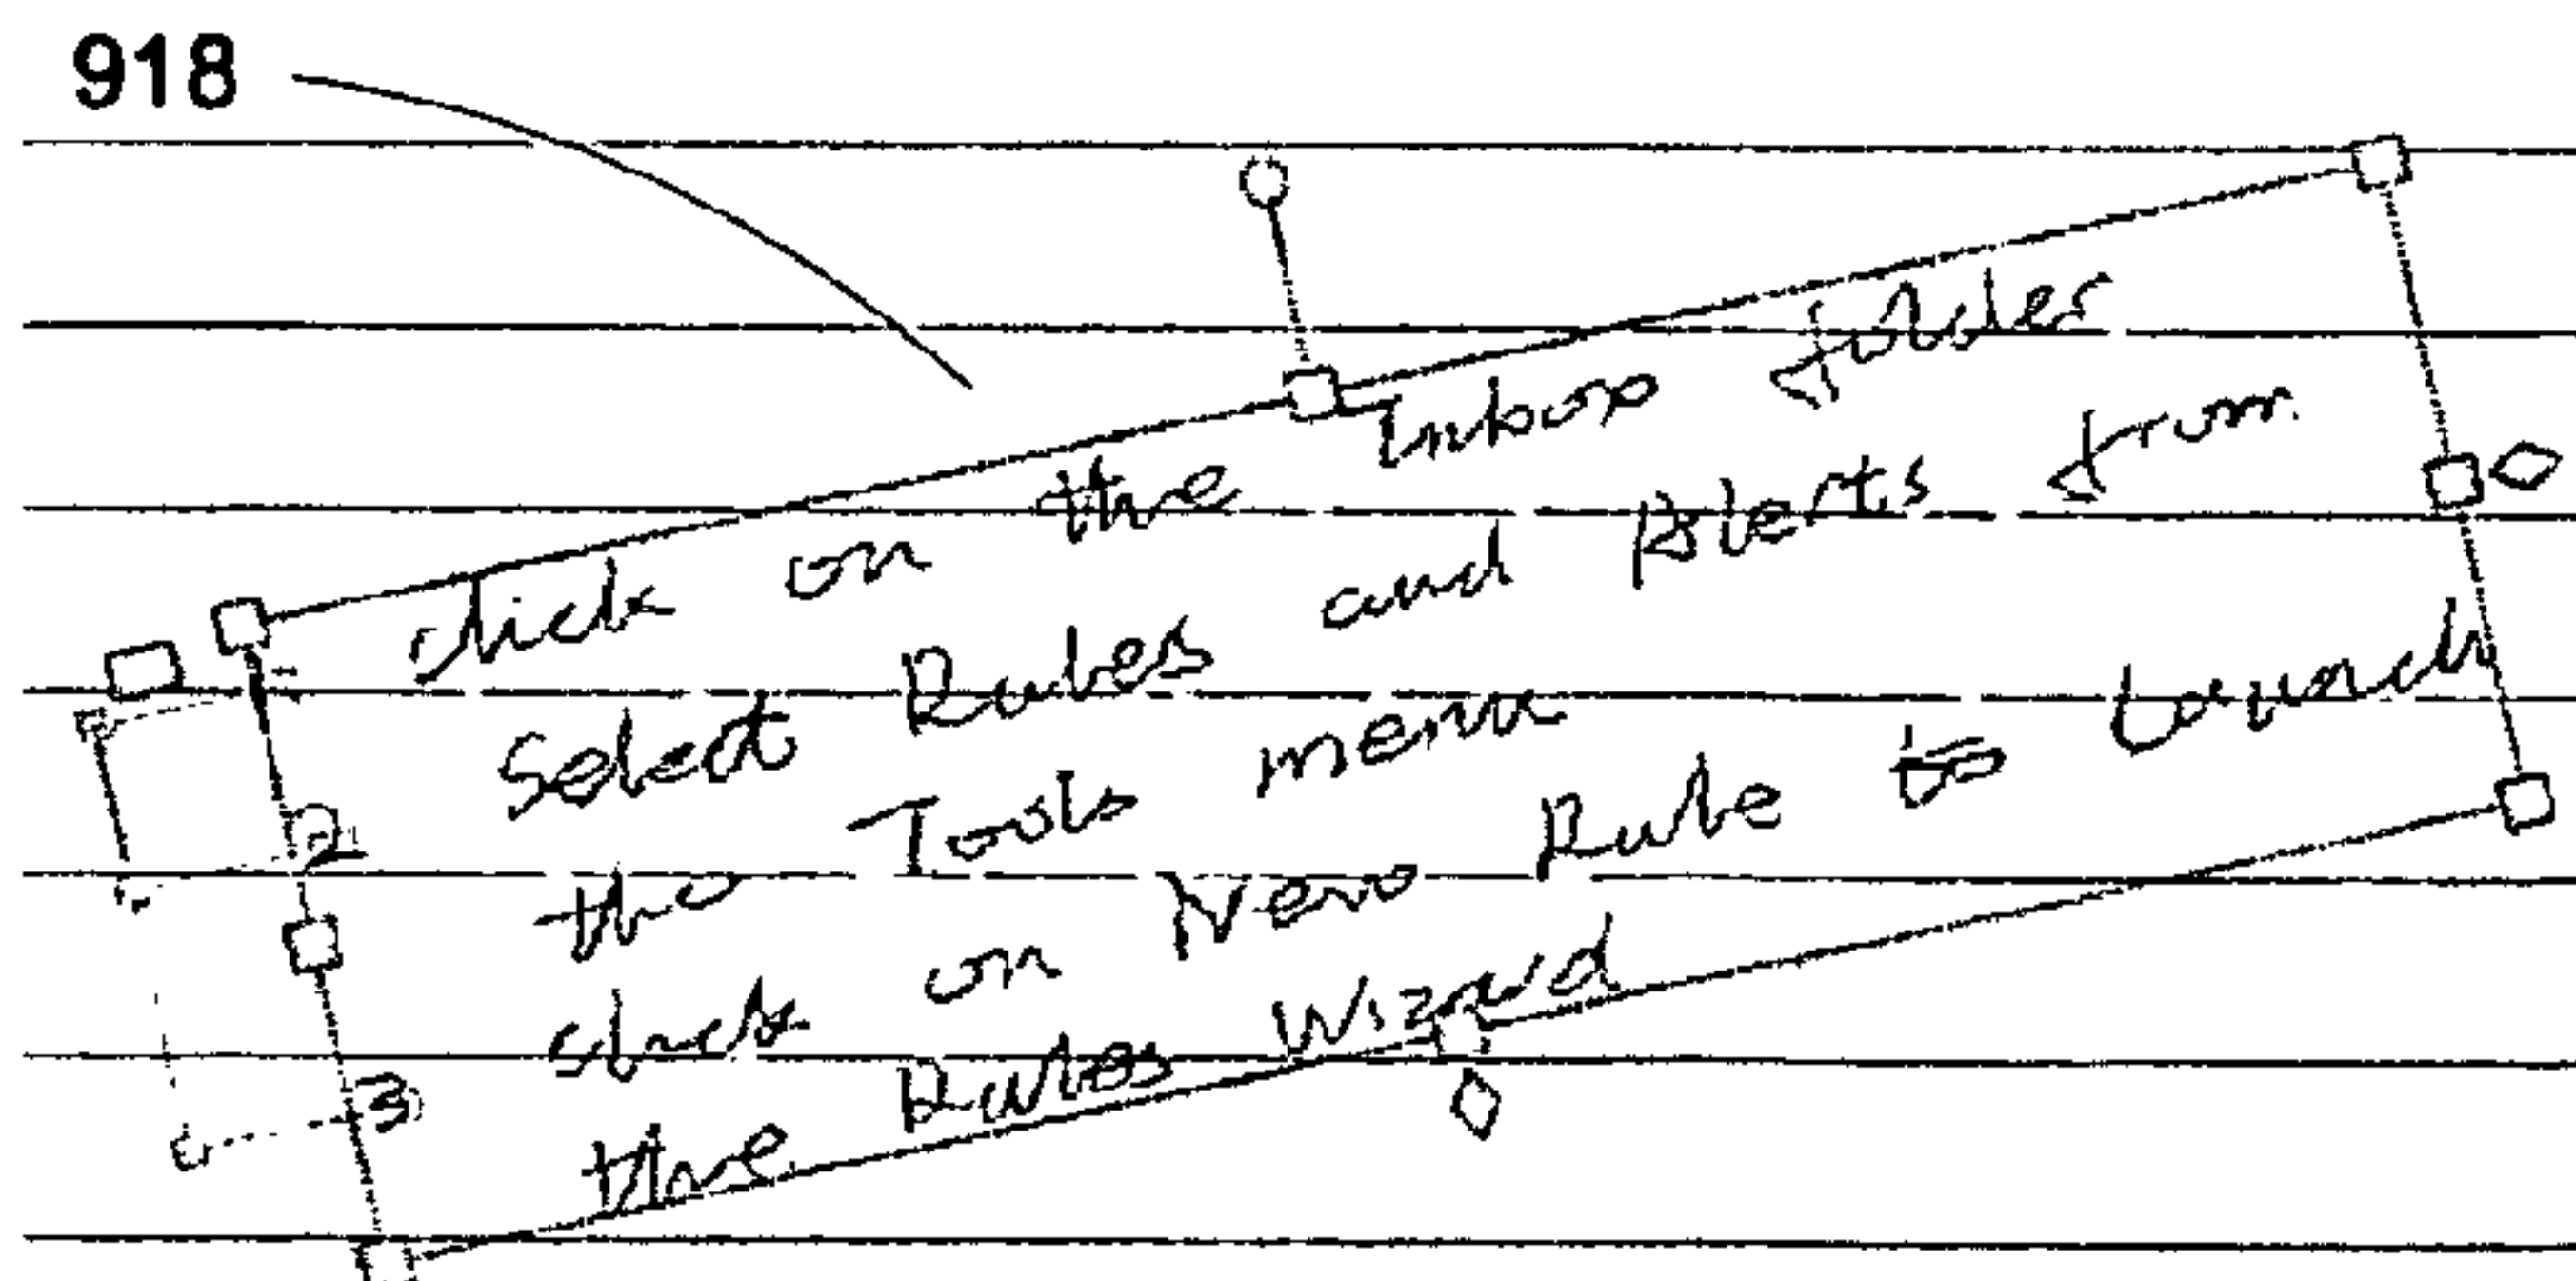 918
1 click on the Inbox folder
2 Select Rules and Alerts from
the Tools menu
3 click on New Rule to Launch
the Rules Wizard